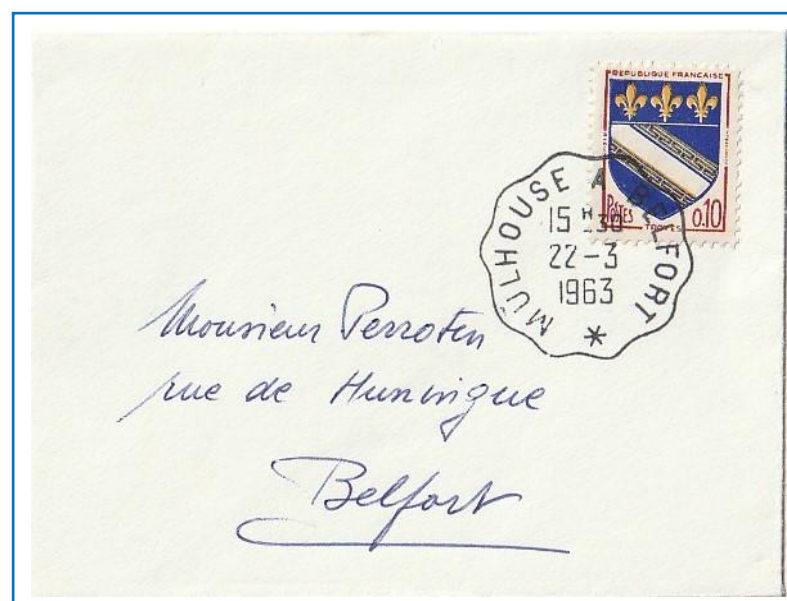 REPUBLIQUE FRANCAISE
POSTES
0.10
TROYES
MULHOUSE A BELFORT *
15 H 30
22-3
1963
Monsieur Perroten
rue de Huningue
Belfort